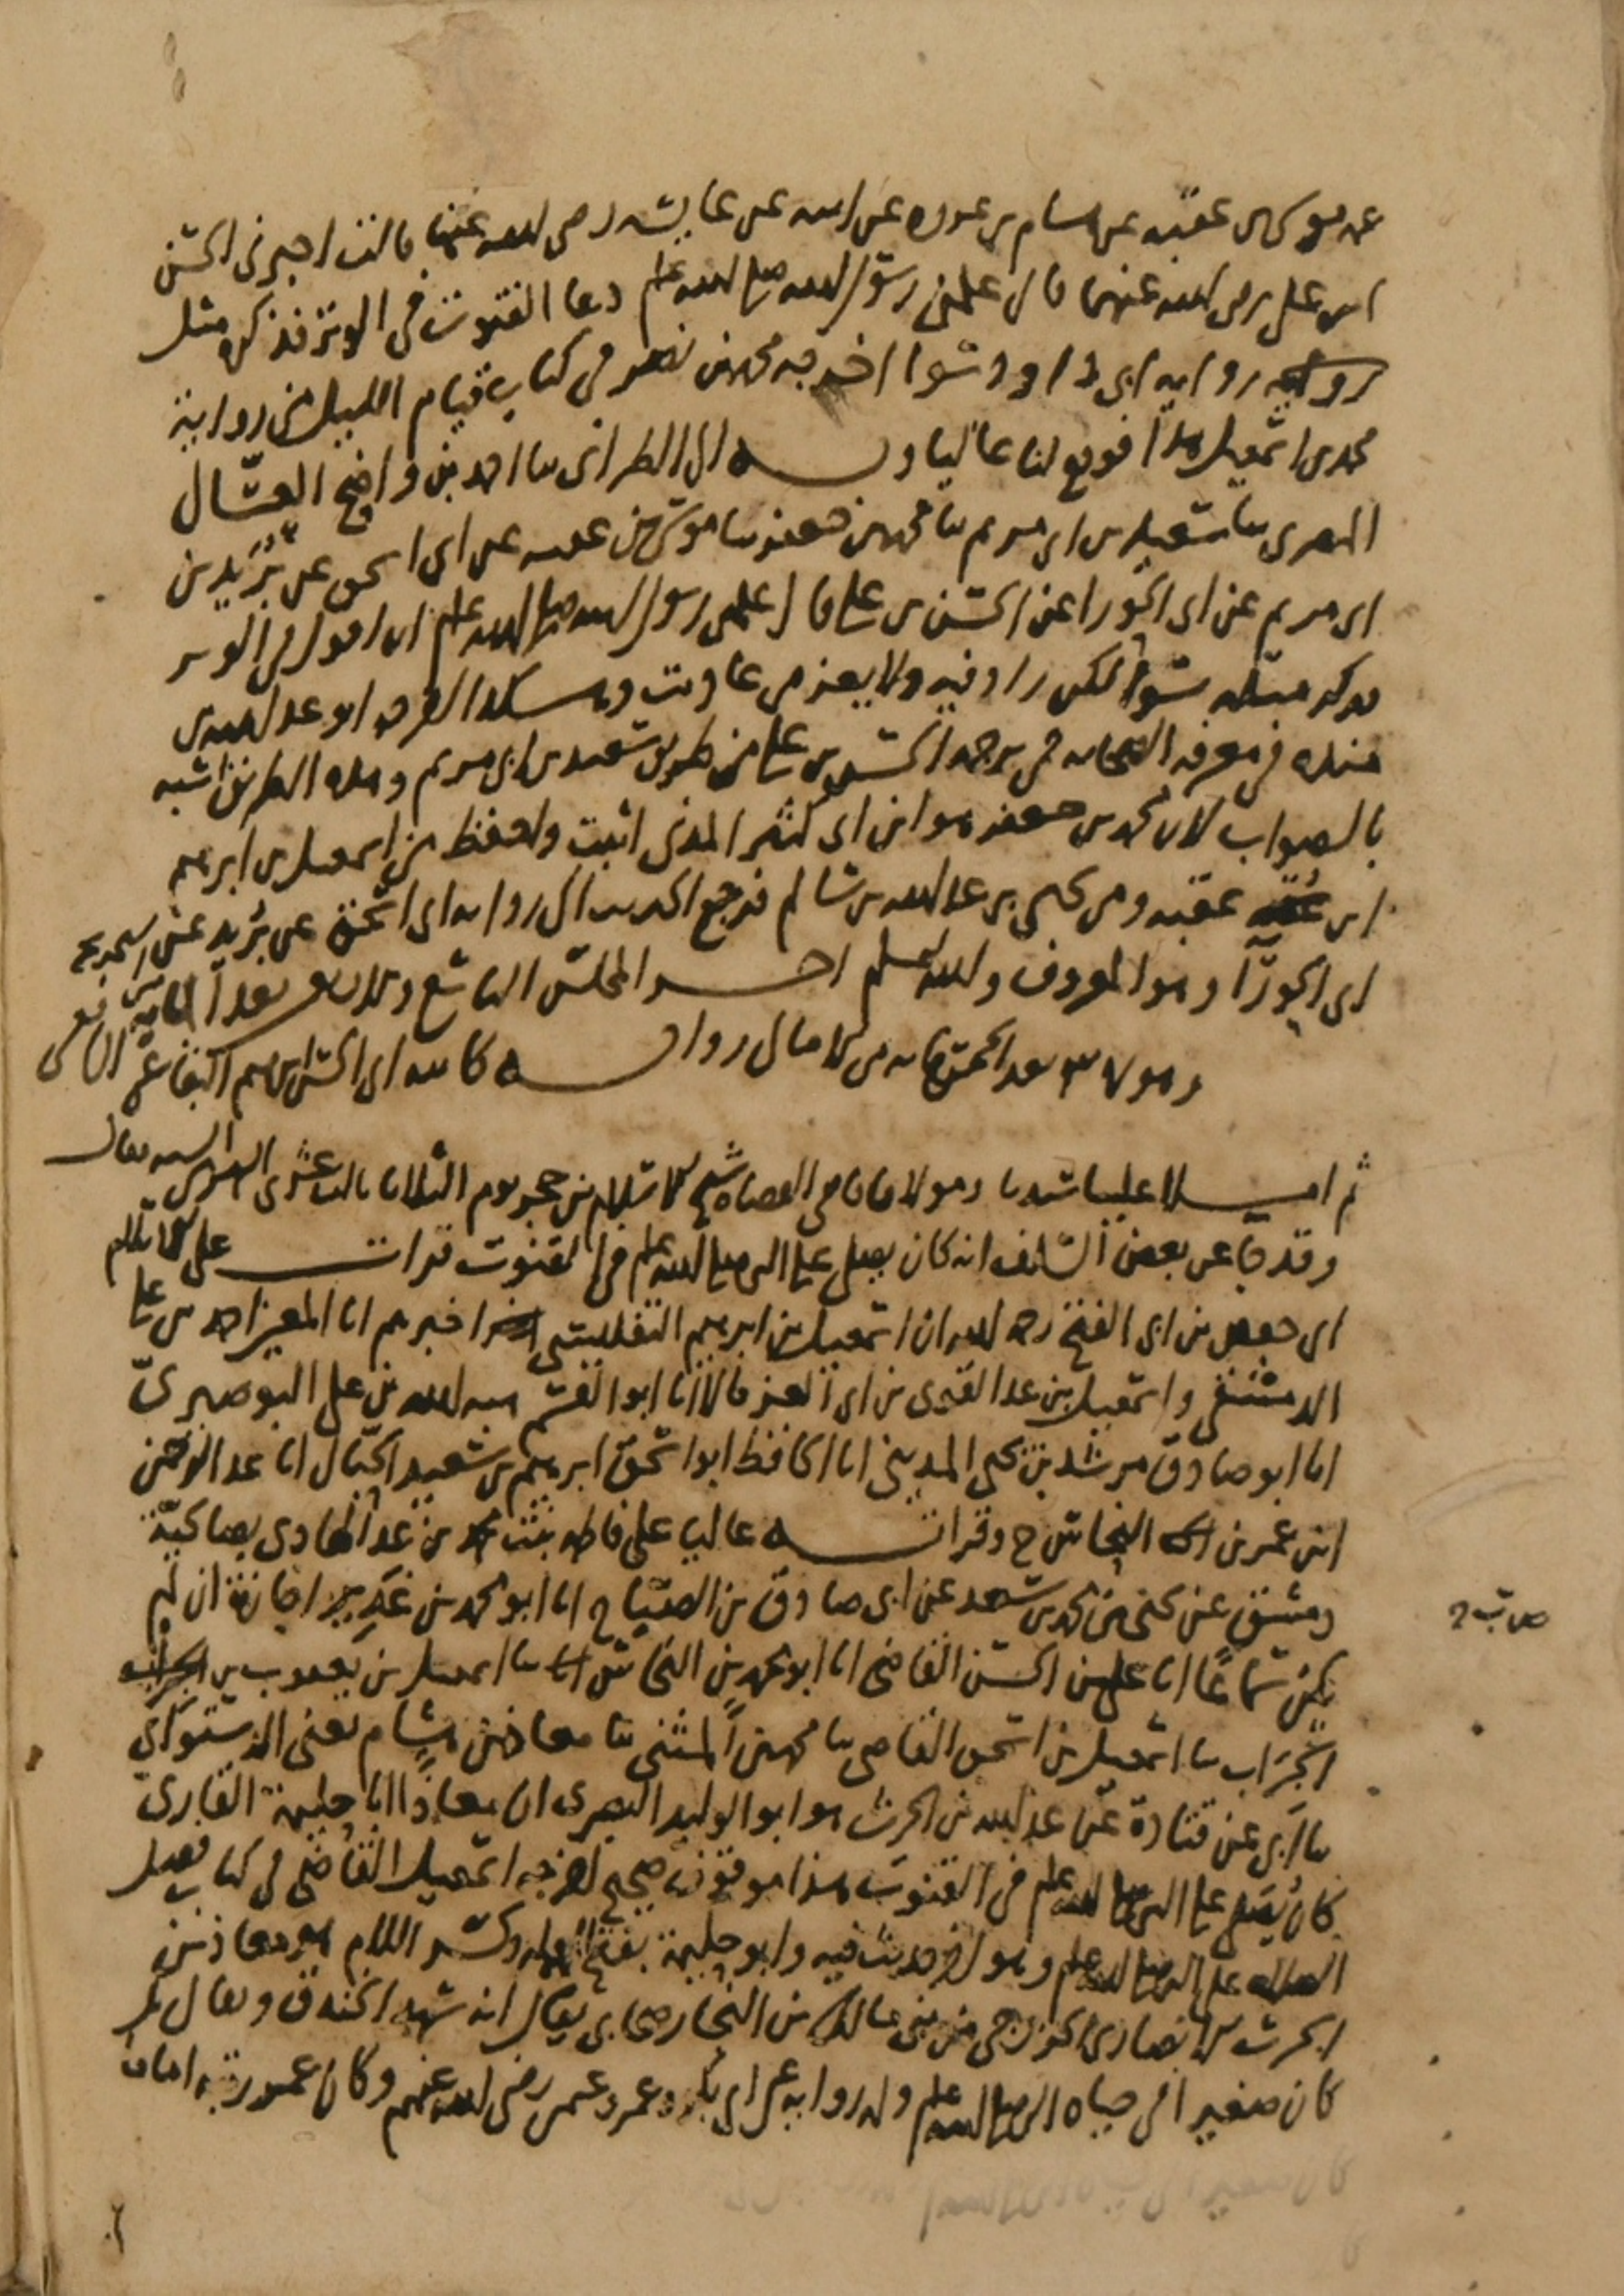 عن موسى بن عقبة عن هشام بن عروة عن ابيه عن عايشة رضى الله عنها قالت اخبرنى الحسن
ابن على رضى الله عنهما قال علمنى رسول الله صلى الله عليه وسلم دعا القنوت فى الوتر فذكر مثل
رواية ابى داود سوا اخرجه محمد بن نصر فى كتاب قيام الليل من رواية
محمد بن اسمعيل هذا فوقع لنا عاليا وبه الى الطبرانى ثنا احمد بن واضح العسّال
المصرى ثنا سعيد بن ابى مريم ثنا محمد بن جعفر ثنا موسى بن عقبة عن ابى اسحق عن بُرَيد بن
ابى مريم عن ابى الحورا عن الحسن بن على قال علمنى رسول الله صلى الله عليه وسلم ان اقول فى الوتر
فذكر مثله سوا لكن زاد فيه ولا يعز من عاديت وهكذا اخرجه ابو عبد الله بن
منده فى معرفة الصحابة فى ترجمة الحسن بن على من طريق سعيد بن ابى مريم وهذه الطريق اشبه
بالصواب لان محمد بن جعفر هو ابن ابى كثير المدنى اثبت واحفظ من اسمعيل بن ابرهيم
ابن عقبة ومن يحيى بن عبد الله بن سالم فرجع الحديث الى رواية ابى اسحق عن بُريد عن
ابى الحورآ وهو المعروف والله اعلم اخر المجلس التاسع والاربعين بعد الماية
وهو بعد الخمسماية من الامالى رواية كاتبه ابى الحسن ابرهيم البقاعى الشافعى
ثم املا علينا سيدنا ومولانا قاضى القضاة شيخ الاسلام بن حجر يوم الثلاثا ثالث عشرى السنة فقال
وقد جا عن بعض السلف انه كان يصلى على النبى صلى الله عليه وسلم فى القنوت قرات على الاسلام
ابى حفص بن ابى الفتح رحمه الله ان اسمعيل بن ابرهيم التفليسى اخبرهم انا المعين احمد بن على
الدمشقى واسمعيل بن عبد القوى بن ابى العز قالا انا ابو القسم هبة الله بن على البوصيرىّ
انا ابو صادق مرشد بن يحيى المدينى انا الحافظ ابو اسحق ابرهيم بن سعيد الحبّال انا عبد الرحمن
ابن عمر بن النحاس ح وقرات عاليا على فاطمة بنت محمد بن عبد الهادى بصالحيّة
دمشق عن يحيى بن محمد بن سعد عن ابى صادق بن الصبّاح انا ابو محمد بن غدير اجازة ان لم
يكن سماعًا انا على بن الحسن القاضى انا ابو محمد بن النحاس ثنا اسمعيل بن يعقوب بن
الجرَاب ثنا اسمعيل بن اسحق القاضى ثنا محمد بن المثنى ثنا معاذ بن هشام يعنى الدستوآى
ثنا ابى عن قتادة عن عبد الله بن الحرث هو ابو الوليد البصرى ان معاذًا ابا حليمة القارىّ
كان يُصَلى على النبى صلى الله عليه وسلم فى القنوت هذا موقوف صحيح اخرجه اسمعيل القاضى فى كتاب فضل
الصلاه على النبى صلى الله عليه وسلم وهو اخر حديث فيه وابو حليمة بفتح المهملة وكسر اللام هو معاذ بن
الحرث الانصارى الخزرجى من بنى مالك بن النجار صحابى يقال انه شهد الخندق ويقال بل
كان صغيرا فى حياة النبى صلى الله عليه وسلم وله رواية عن ابى بكر وعمر وعثمن رضى الله عنهم وكان عمر رتبه اماما